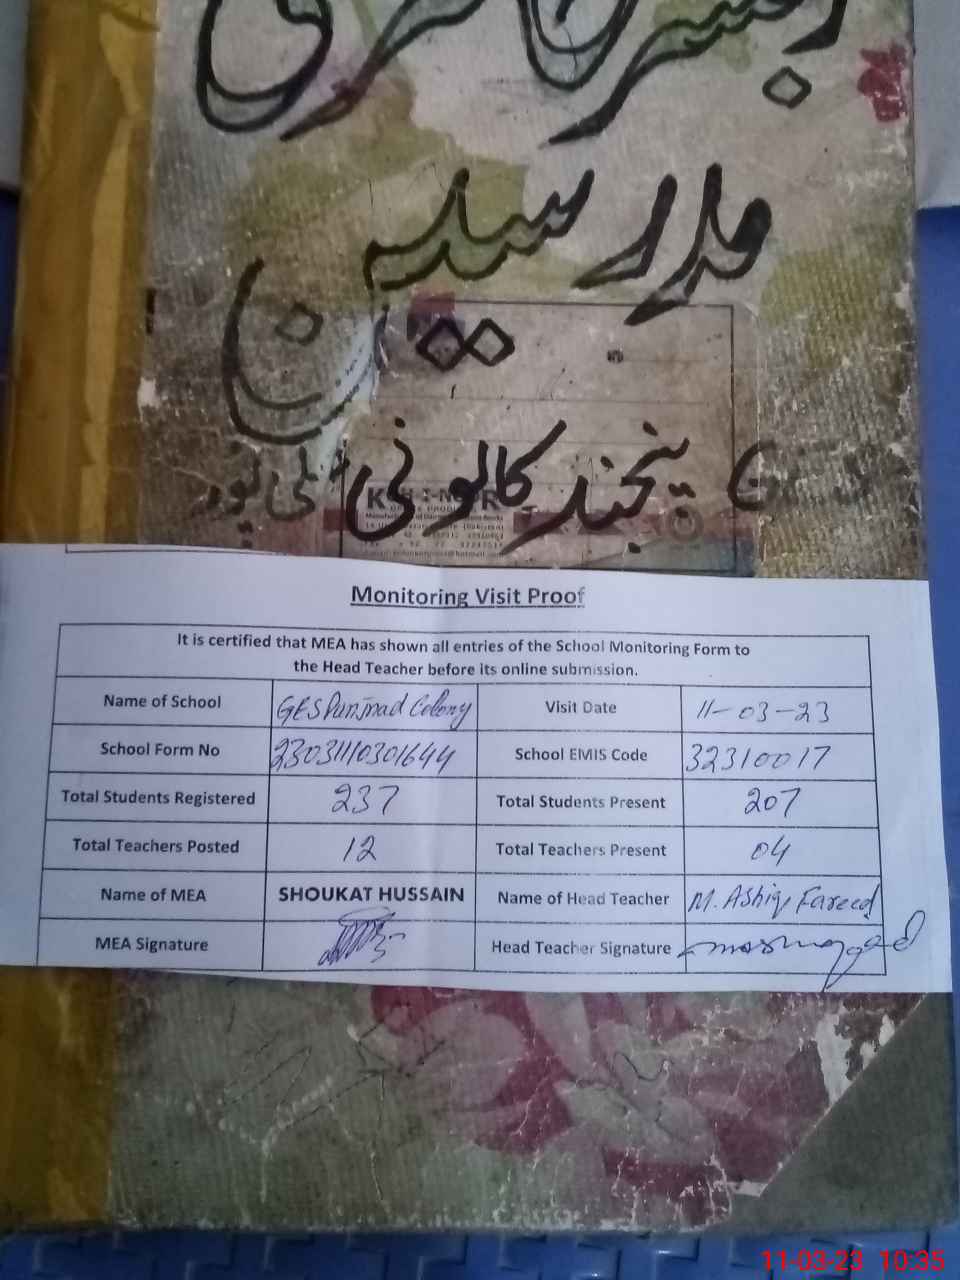 رجسٹر حاضری
مدرسین
پنجند کالونی
KOH-I-NOOR
Monitoring Visit Proof
It is certified that MEA has shown all entries of the School Monitoring Form to
the Head Teacher before its online submission.
Name of School GES Punjnad Colony Visit Date 11-03-23
School Form No 23031110301644 School EMIS Code 32310017
Total Students Registered 237 Total Students Present 207
Total Teachers Posted 12 Total Teachers Present 04
Name of MEA SHOUKAT HUSSAIN Name of Head Teacher M. Ashiq Fareed
MEA Signature Head Teacher Signature
11-03-23 10:35